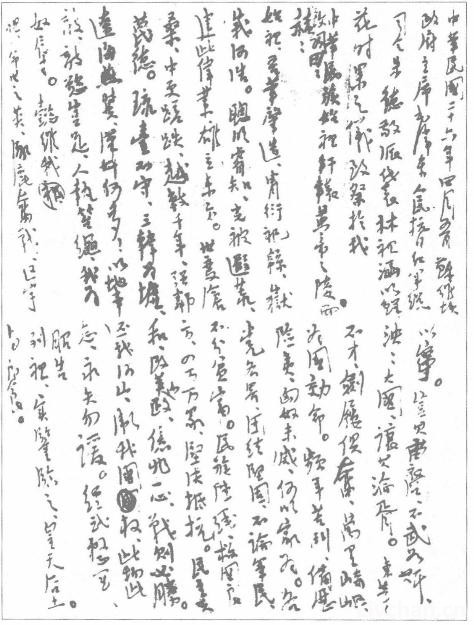 中華民國二十六年四月五日、蘇維埃
政府主席毛澤東、人民抗日紅軍總
司令朱德敬派代表林祖涵、以鮮
花時果之儀致祭於我
中華民族始祖軒轅黃帝之陵。而
致詞曰：
赫赫
始祖、吾華肇造、胄衍祀綿、嶽
峨河浩。聰明睿知、光被遐荒、
建此偉業、雄立東方。世變滄
桑、中更蹉跌、越數千年、強鄰
蔑德。琉臺不守、三韓為墟、
遼海燕冀、漢奸何多！以地事
敵、敵欲豈足、人執笞繩、我為
奴辱。懿維我祖、
命世之英、涿鹿奮戰、區宇
以寧。豈其苗裔、不武如斯、
泱泱大國、讓其淪胥。東等
不才、劍屨俱奮、萬里崎嶇、
為國効命。頻年苦鬥、備歷
險夷、匈奴未滅、何以家為。各
黨各界、團結堅固、不論軍民、
不分貧富。民族陣綫、救國良
方、四萬萬眾、堅決抵抗。民主共
和、改革內政、億兆一心、戰則必勝。
還我河山、衛我國權、此物此
志、永矢勿諼。經武整軍、
昭告
列祖、實鑒臨之、皇天后土。
尚饗。